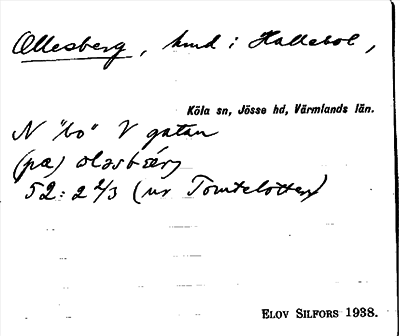 Ollesberg, hmd i Hallebol,
Köla sn, Jösse hd, Värmlands län.
N "bo" V gatan
(pα) olasbärj
52:2 2/3 (ur Tomtelotten)
ELOV SILFORS 1938.